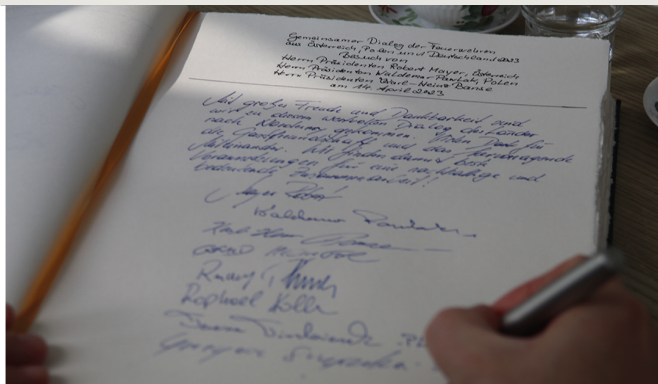 Gemeinsamer Dialog der Feuerwehren
aus Österreich, Polen und Deutschland 2023
Besuch von
Herrn Präsidenten Robert Mayer, Österreich
Herrn Präsidenten Waldemar Pawlak, Polen
Herrn Präsidenten Karl-Heinz Banse
am 14. April 2023
Mit großer Freude und Dankbarkeit sind
wir zu diesem wertvollen Dialog der Länder
nach gekommen. Vielen Dank für
die Gastfreundschaft und das hervorragende
Miteinander. Wir finden damit beste
Voraussetzungen für eine nachhaltige und
Zusammenarbeit!
Mayer Robert
Waldemar Pawlak
Karl-Heinz Banse
Rudolf
Raphael Koller